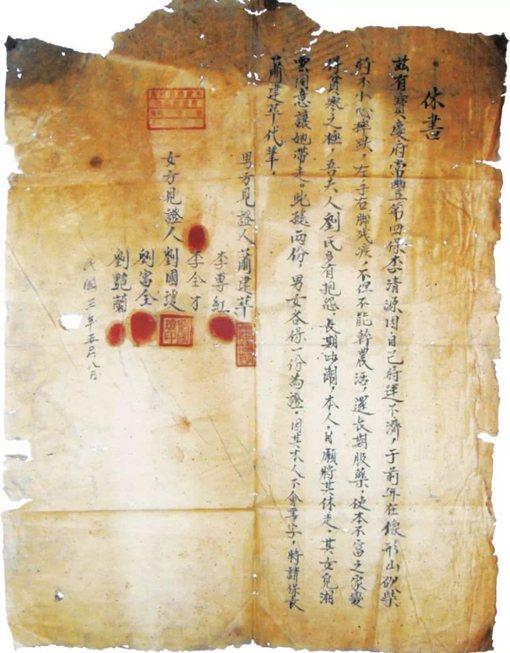 休書
茲有寶慶府常豐第四保李清源因自己時運不濟，于前年在像形山砍柴
時不小心摔跌，左手右脚残疾，不但不能幹農活，還長期服藥，使本不富之家變
得貧寒之極，吾夫人劉氏多有抱怨，長期吵鬧，本人自願將其休走，其女兒湘
雲同意讓她帶走。此據兩份，男女各保一份為證，因其本人不會寫字，特請保長
蕭建華代筆。
男方見證人蕭建華
李專紅
李全才
女方見證人劉國
劉富全
劉艷蘭
民國三年五月八日